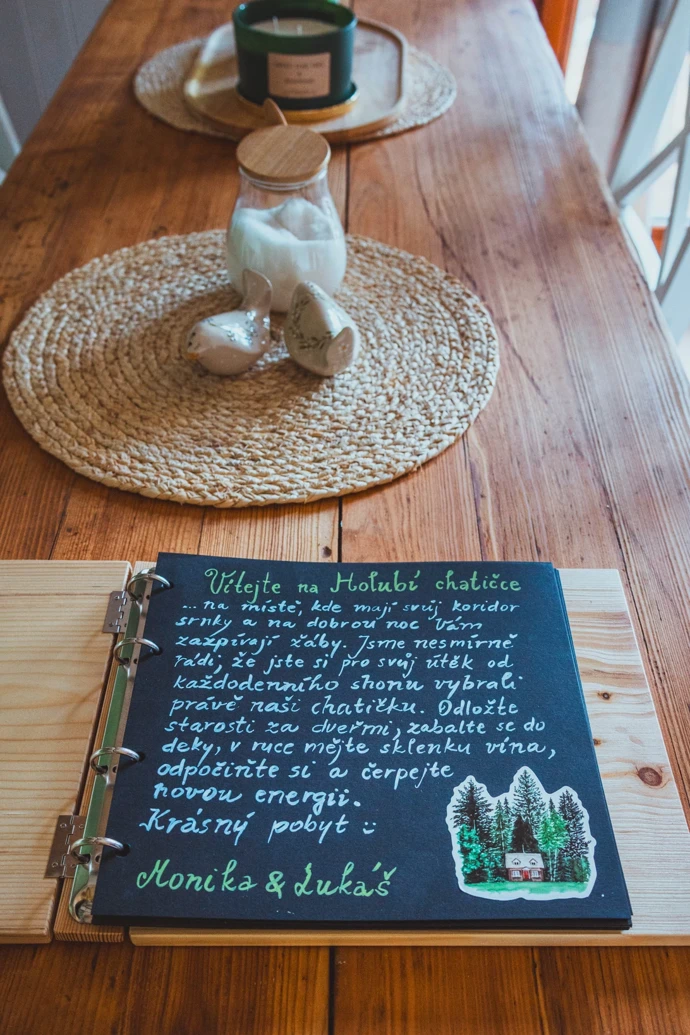 Vítejte na Holubí chatičce
... na místě, kde mají svůj koridor
srnky a na dobrou noc Vám
zazpívají žáby. Jsme nesmírně
rádi, že jste si pro svůj útěk od
každodenního shonu vybrali
právě naši chatičku. Odložte
starosti za dveřmi, zabalte se do
deky, v ruce mějte sklenku vína,
odpočiňte si a čerpejte
novou energii.
Krásný pobyt :)
Monika & Lukáš